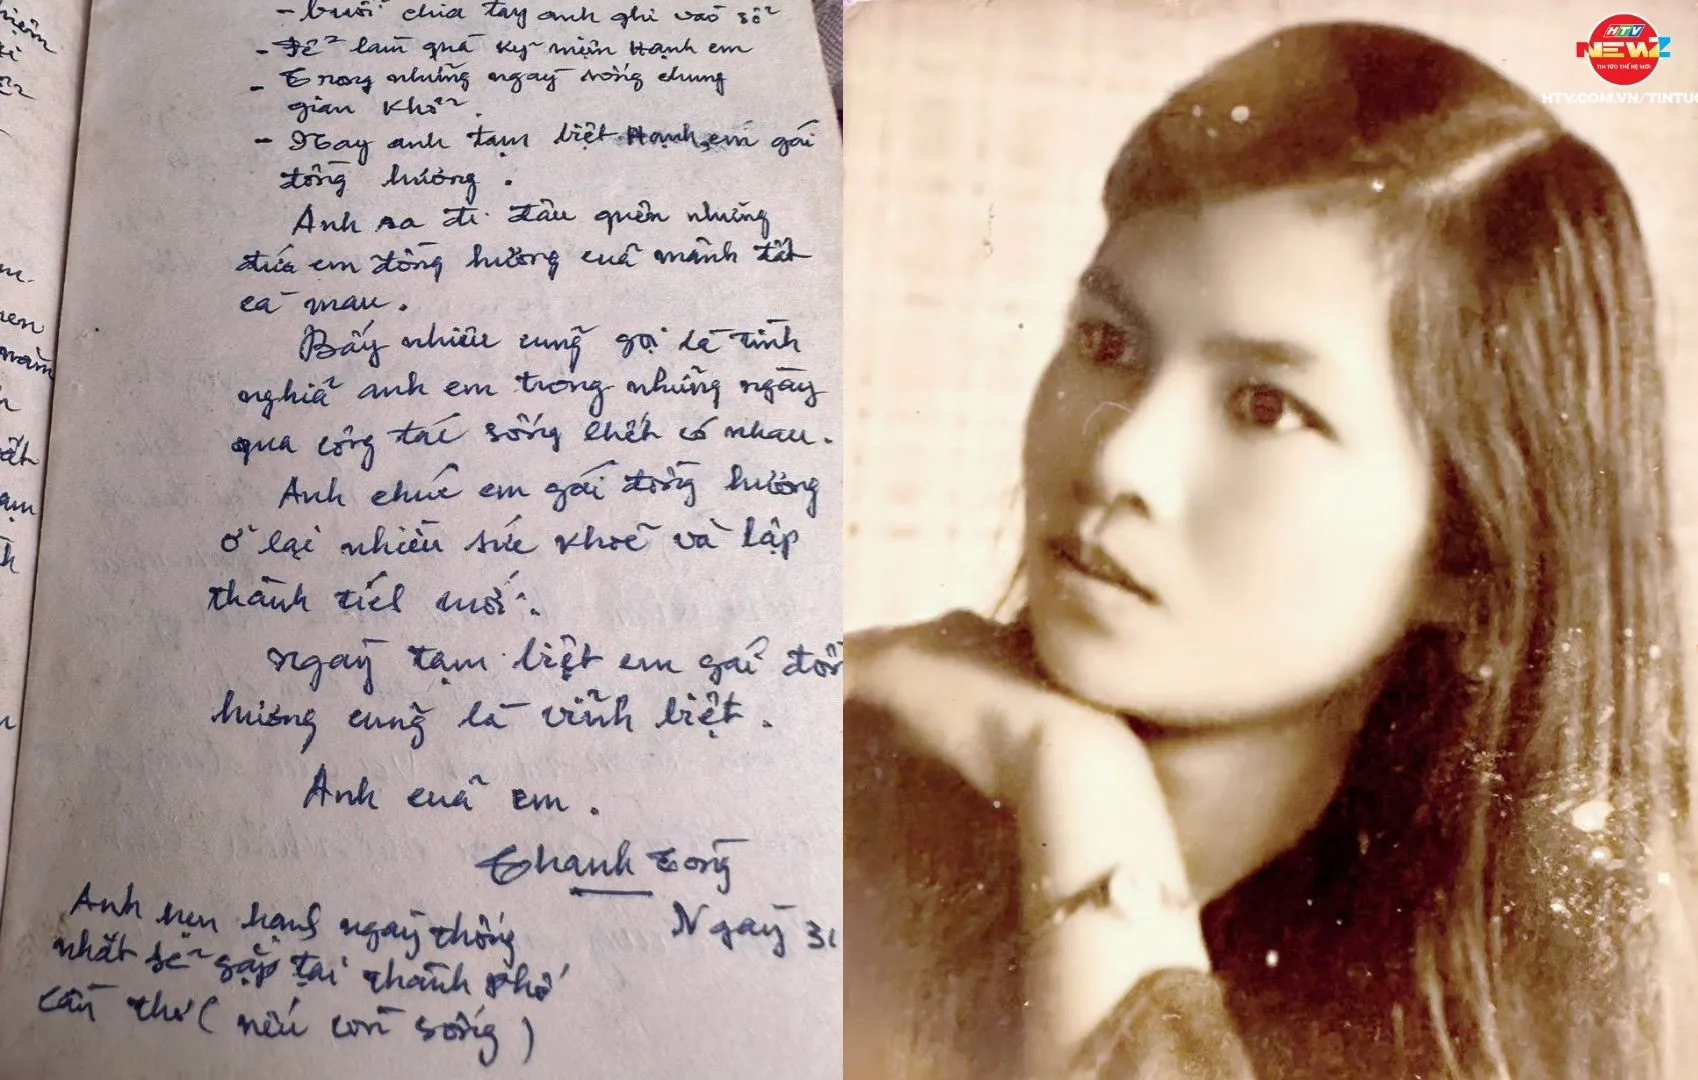 - buổi chia tay anh ghi vào sổ
- Để làm quà kỷ niệm Hạnh em
- Trong những ngày sống chung
gian khổ.
- Nay anh tạm biệt Hạnh, em gái
đồng hương.
Anh ra đi đâu quên những
đứa em đồng hương cuả mãnh đất
cà mau.
Bấy nhiêu cũng gọi là tình
nghiã anh em trong những ngày
qua công tác sống chết có nhau.
Anh chúc em gái đồng hương
ở lại nhiều sức khoẻ và lập
thành tích mới.
Ngày tạm biệt em gái đồn
hương cũng là vĩnh biệt.
Anh cuả em.
Thanh Tòng
Ngày 31
Anh hẹn hạnh ngày thống
nhất sẽ gặp tại thành phố
cần thơ (nếu còn sống)
HTV
NEWZ
TIN TỨC THẾ HỆ MỚI
HTV.COM.VN/TINTUC